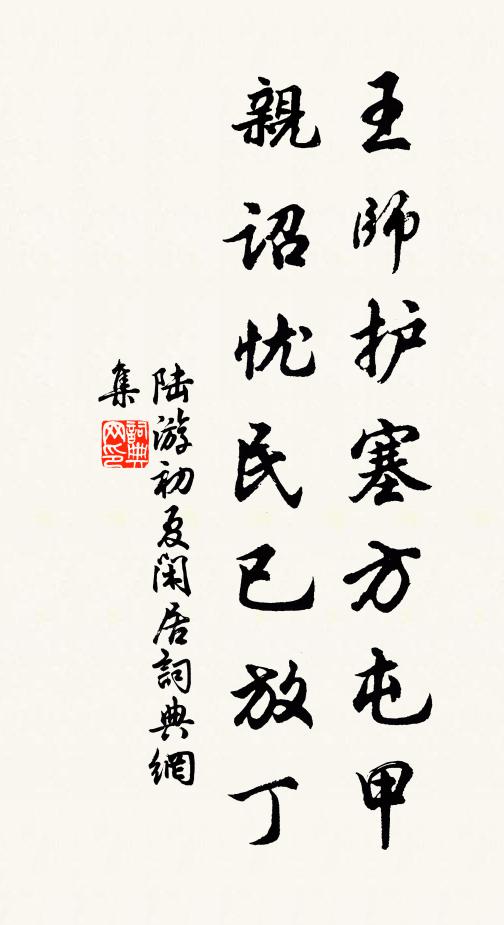 王師护塞方屯甲
親詔忧民已放丁
陆游初夏闲居詞典網
集
詞典
网印